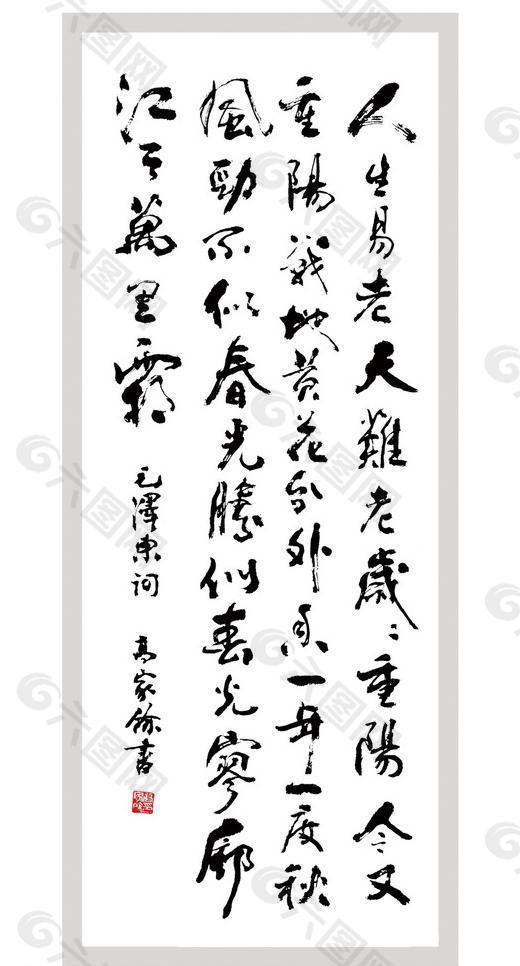 人生易老天難老歲々重陽今又
重陽戰地黃花分外香一年一度秋
風勁不似春光勝似春光寥廓
江天萬里霜 毛澤東詞 高家餘書
六图网